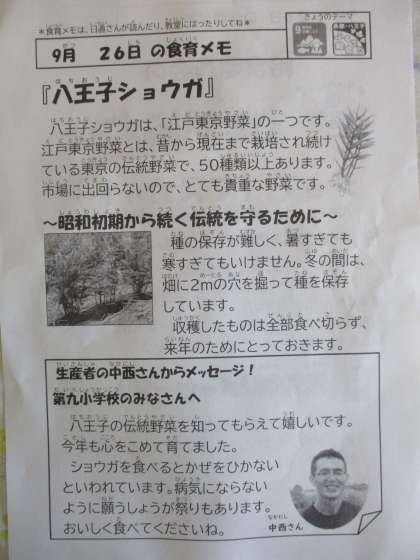 ＊食育メモは、日直さんが読んだり、教室にはったりしてね＊
きょうのテーマ
9月 26日 の食育メモ
『八王子ショウガ』
八王子ショウガは、「江戸東京野菜」の一つです。
江戸東京野菜とは、昔から現在まで栽培され続け
ている東京の伝統野菜で、50種類以上あります。
市場に出回らないので、とても貴重な野菜です。
～昭和初期から続く伝統を守るために～
種の保存が難しく、暑すぎても
寒すぎてもいけません。冬の間は、
畑に2mの穴を掘って種を保存
しています。
収穫したものは全部食べ切らず、
来年のためにとっておきます。
生産者の中西さんからメッセージ！
第九小学校のみなさんへ
八王子の伝統野菜を知ってもらえて嬉しいです。
今年も心をこめて育てました。
ショウガを食べるとかぜをひかない
といわれています。病気にならない
ように願うしょうが祭りもあります。
おいしく食べてくださいね。
中西さん